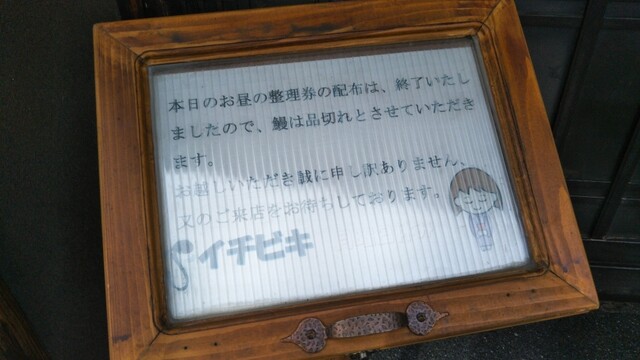 本日のお昼の整理券の配布は、終了いたし
ましたので、鰻は品切れとさせていただき
ます。
お越しいただき誠に申し訳ありません、
又のご来店をお待ちしております。
イチビキ